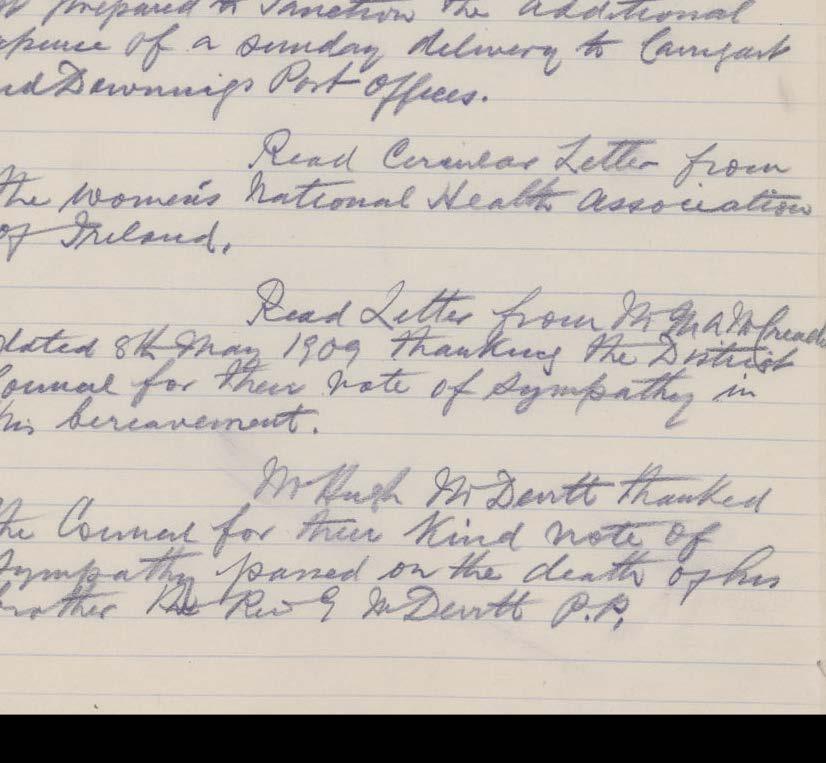 prepared to Sanction the additional
of a sunday delivery to Carrigart
Downings Post Offices.
Read Circular Letter from
the women's National Health Association
of Ireland.
Read Letter from Mr
dated 8th May 1909 thanking the District
Council for their note of sympathy in
his bereavement.
Mr Hugh McDevitt thanked
the Council for their kind note of
sympathy passed on the death of his
brother the Rev McDevitt P.P.